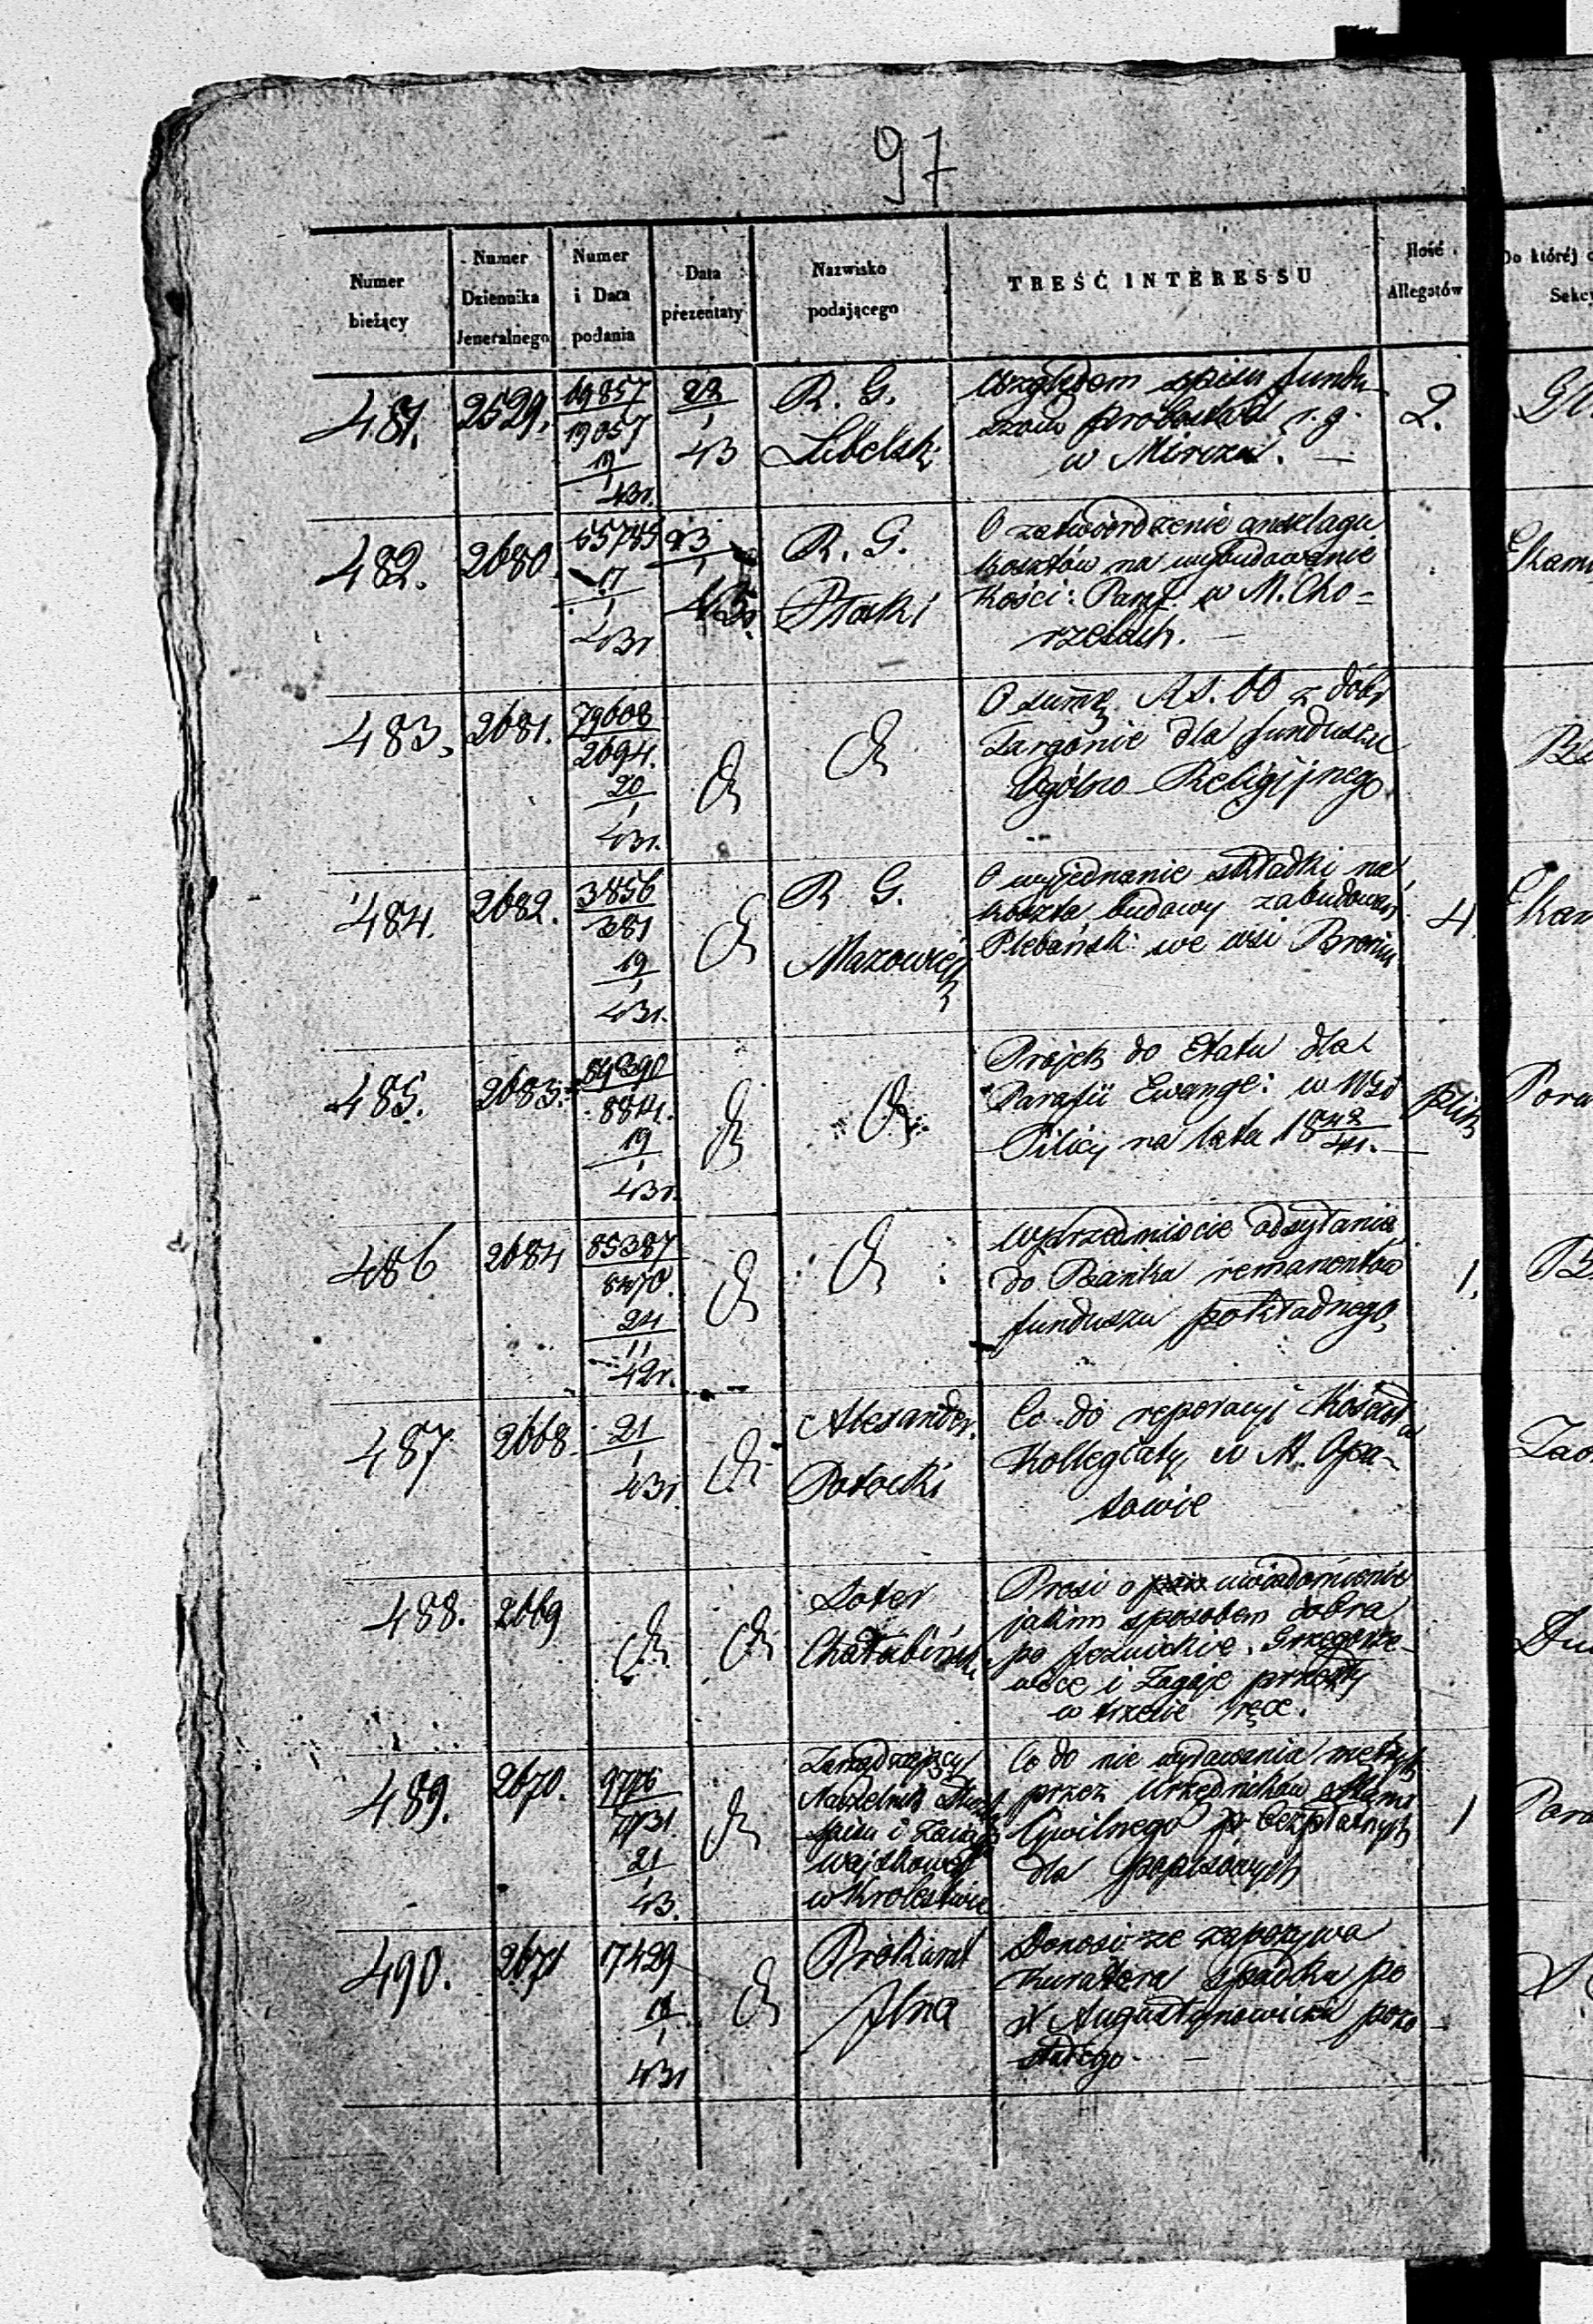 97
Numer bieżący
Numer Dziennika Jeneralnego
Numer i Data podania
Data prezentaty
Nazwisko podającego
TREŚĆ INTERESSU
Ilość Allegatów
Do któréj
Sekc
481.
2529.
19857
19057
19
1
43r.
22
1
43
R. G.
Lubelski
Względem spisu fundu-
szów probostwa r. g.
w Mirczu. —
2.
482.
2680.
17
1
43r
23
1
43r.
R. G.
Płocki
O zatwierdzenie anszlagu
kosztów na wybudowanie
Kości: Paraf. w M. Cho=
rzelach. —
483.
2681.
79608
2694.
20
1
43r.
O summę RS. 60 z dóbr
Targonie dla funduszu
Ogólno-Religijnego
484.
2682.
3856
381
19
1
43r.
R G.
Mazowiecki
O wyjednanie składki na
koszta budowy zabudowań
Plebańsk: we wsi Broniu
4.
485.
2683.
89390
8814.
19
1
43r.
Projekt do Etatu dla
Parafii Ewange: w
Pilicy na lata 18
Plik
486
2684
85387
8470.
24
11
42r.
W przedmiocie odsyłania
do Banku remanentów
funduszu pokładnego
1.
487
2668
21
1
43r.
Alexander
Potocki
Co do reperacyi Kościoła
Kollegiaty w M. Opa-
towie
488.
2669
Soter
Chałubiński
Prosi o uwiadomienie
jakim sposobem dobra
po Jezuickie Grzegorze-
wice i Zagaje przeszły
w trzecie ręce.
489.
2670.
9776
21
1
43.
Zarządzający
Naczelnik
Spisu i Zaciągu
wojskowego
w Królestwie
Co do nie wydawania metryk
przez Urzędników Stanu
Cywilnego bezpłatnych
dla popisowych
1
490.
2671
17429
1
43r
Prokurat
Jlna
Donosi że zapozywa
Kuratora spadku po
X Augustynowiczu pozo-
stałego. —